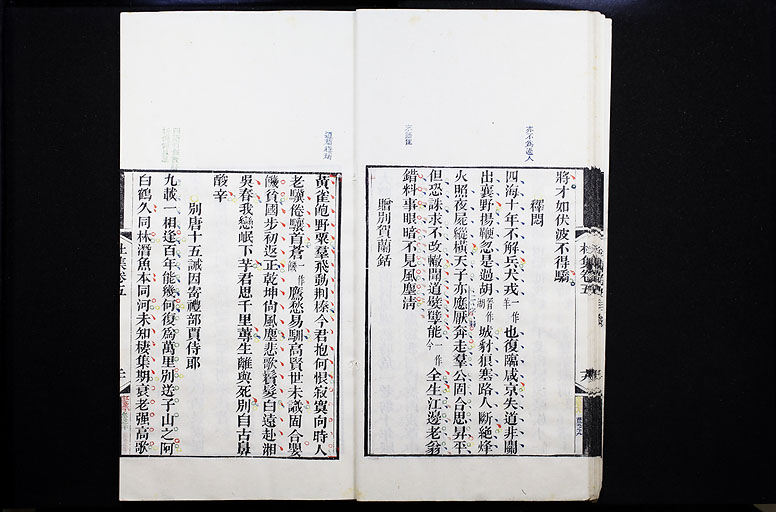 將才如伏波不得驕
釋悶
四海十年不解兵犬戎羊一作也復臨咸京失道非關
出襄野揚鞭忽是過胡湖晉作城豺狼塞路人斷絕烽
火照夜屍縱橫天子亦應厭奔走羣公固合思昇平
但恐誅求不改轍聞道嬖孽能今一作全生江邊老翁
錯料事眼暗不見風塵清
贈別賀蘭銛
黃雀飽野粟羣飛動荆榛今君抱何恨寂寞向時人
老驥倦驤首蒼饑一作鷹愁易馴高賢世未識固合嬰
饑貧國步初返正乾坤尚風塵悲歌鬢髮白遠赴湘
吳春我戀岷下芋君思千里蓴生離與死別自古鼻
酸辛
別唐十五誡因寄禮部賈侍郎
九載一相逢百年能幾何復爲萬里別送子山之阿
白鶴久同林潛魚本同河未知棲集期衰老强高歌
杜集卷五